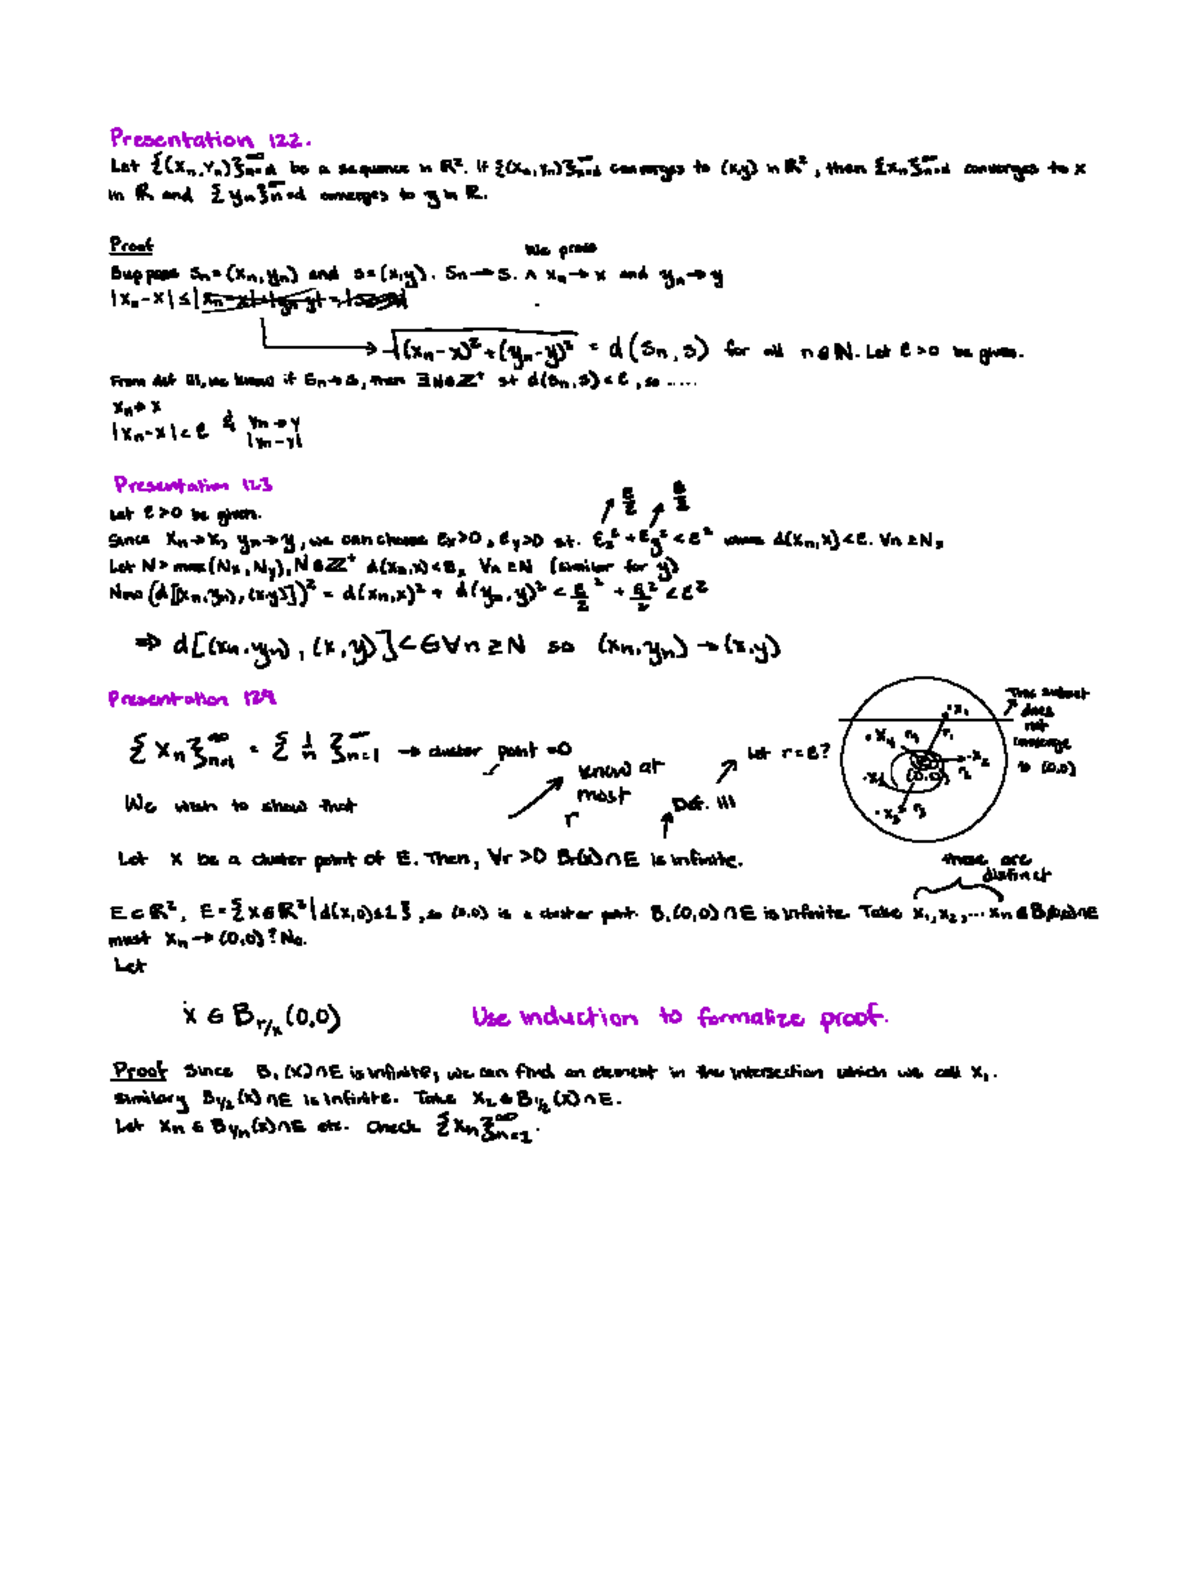 Presentation 122.
Let {(xn, yn)}∞n=1 be a sequence in ℝ². If {(xn, yn)}∞n=1 converges to (x,y) in ℝ², then {xn}∞n=1 converges to x
in ℝ and {yn}∞n=1 converges to y in ℝ.
Proof
We prove
Suppose Sn = (xn, yn) and s = (x,y). Sn → s. ∧ xn → x and yn → y
|xn - x| ≤
√(xn - x)² + (yn - y)² = d(sn, s) for all n ∈ ℕ. Let ε > 0 be given.
From def 111, we know if Sn → s, then ∃ N ∈ ℤ⁺ st d(sn, s) < ε, so .....
xn → x
|xn - x| < ε & yn → y
|yn - y|
Presentation 123
Let ε > 0 be given.
ε/2 ε/2
Since xn → x, yn → y, we can choose εx > 0, εy > 0 st. εx² + εy² < ε² where d(xn, x) < ε. ∀n ≥ Nx
Let N > max(Nx, Ny), N ∈ ℤ⁺ d(xn, x) < εx ∀n ≥ N (similar for y)
Now (d[(xn, yn), (x,y)])² = d(xn, x)² + d(yn, y)² < ε/2² + ε/2² < ε²
⇒ d[(xn, yn), (x, y)] < ε ∀n ≥ N so (xn, yn) → (x, y)
Presentation 124
{xn}∞n=1 = {1/n}∞n=1 → cluster point = 0
know at
most
r
Let r = ε?
Def. 111
We wish to show that
x1
x4 r4 r1
x2
(0,0) r2
x3 r3
This subset
does
not
converge
to (0,0)
Let x be a cluster point of E. Then, ∀r > 0 Br(x) ∩ E is infinite.
these are
distinct
E ⊂ ℝ², E = {x ∈ ℝ² | d(x,0) ≤ 1}, so (0,0) is a cluster point. B1(0,0) ∩ E is infinite. Take x1, x2, ... xn ∈ B1(0,0) ∩ E
must xn → (0,0)? No.
Let
x ∈ Br/x (0,0)
Use induction to formalize proof.
Proof Since B1(x) ∩ E is infinite, we can find an element in the intersection which we call x1.
Similarly B1/2(x) ∩ E is infinite. Take x2 ∈ B1/2(x) ∩ E.
Let xn ∈ B1/n(x) ∩ E etc. Check {xn}∞n=1.